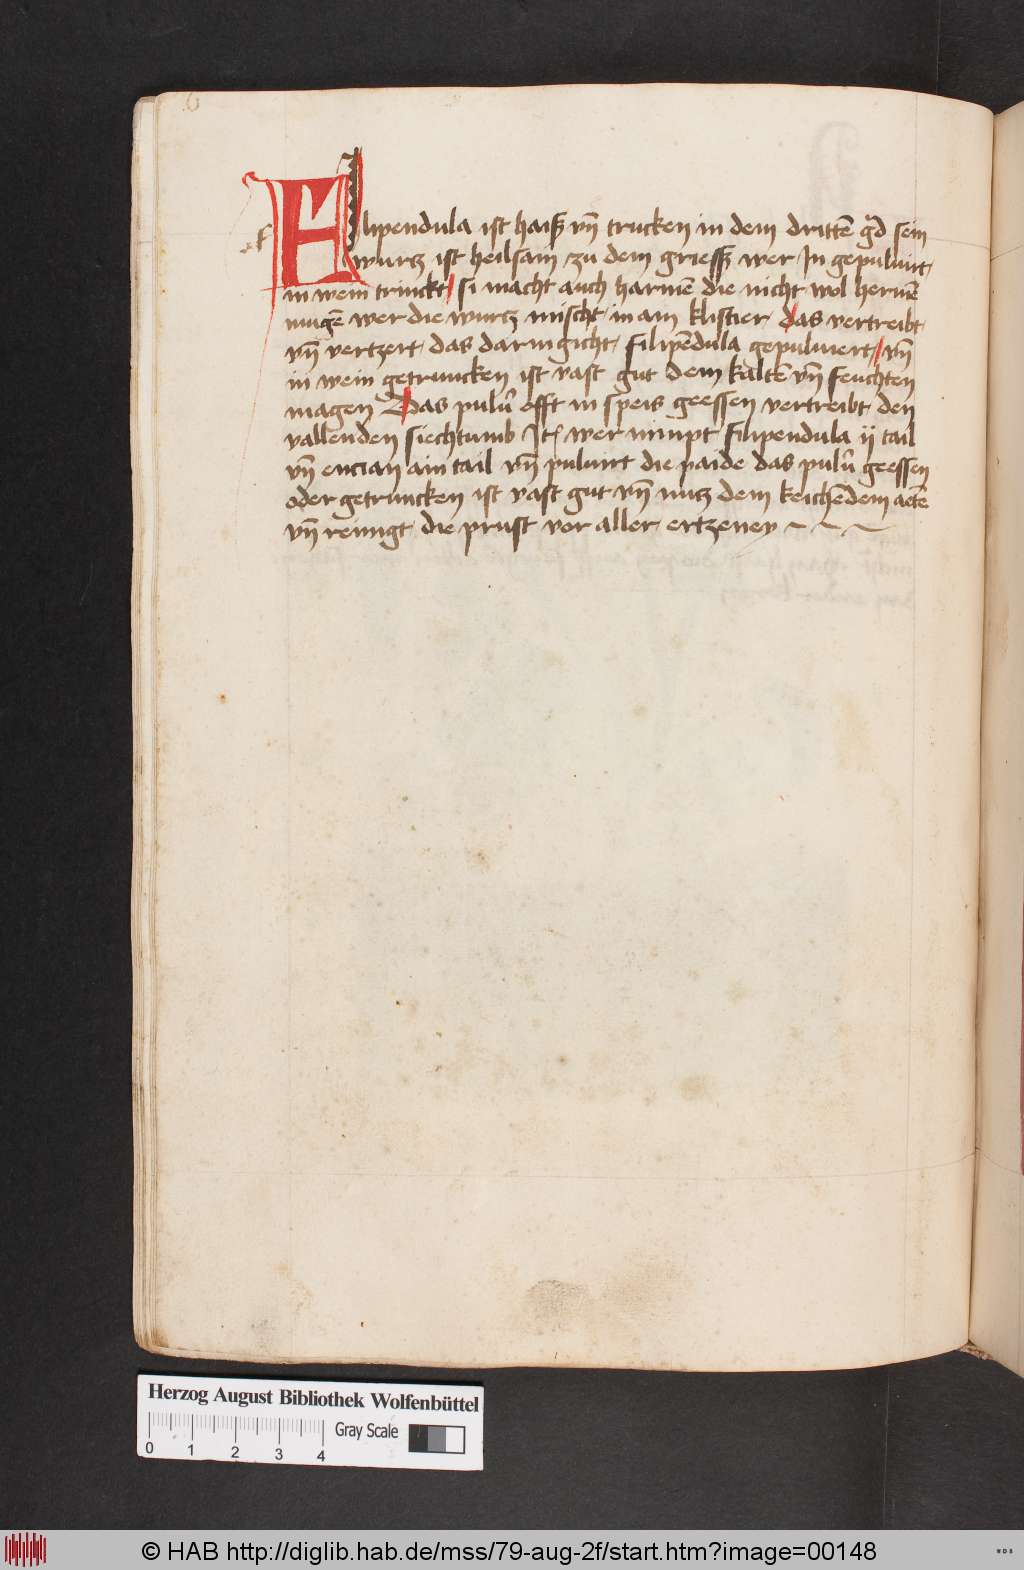 Filipendula ist haiß vn̄ trucken in dem drittē gᵃd sein
wurtz ist heilsam zu dem griessz wer In gepuluirt
in wein trinckt si macht auch harmē die nicht wol hernē
mugē wer die wurtz mischt in ain klistier Das vertreibt
vn̄ vertzert das darmgicht filipēdula gepuluert vn̄
in wein getruncken ist vast gut dem kaltē vn̄ feuchten
magen Das puluͬ offt in speis geessen vertreibt den
vallenden siechtumb Itꝫ wer nimpt filipendula ij tail
vn̄ encian ain tail vn̄ puluirt die paide das puluͬ geessen
oder getruncken ist vast gut vn̄ nutz dem keichēdem actē
vn̄ reinigt die prust vor aller ertzeney ~ ~ ~
Herzog August Bibliothek Wolfenbüttel
Gray Scale
0 1 2 3 4
© HAB http://diglib.hab.de/mss/79-aug-2f/start.htm?image=00148